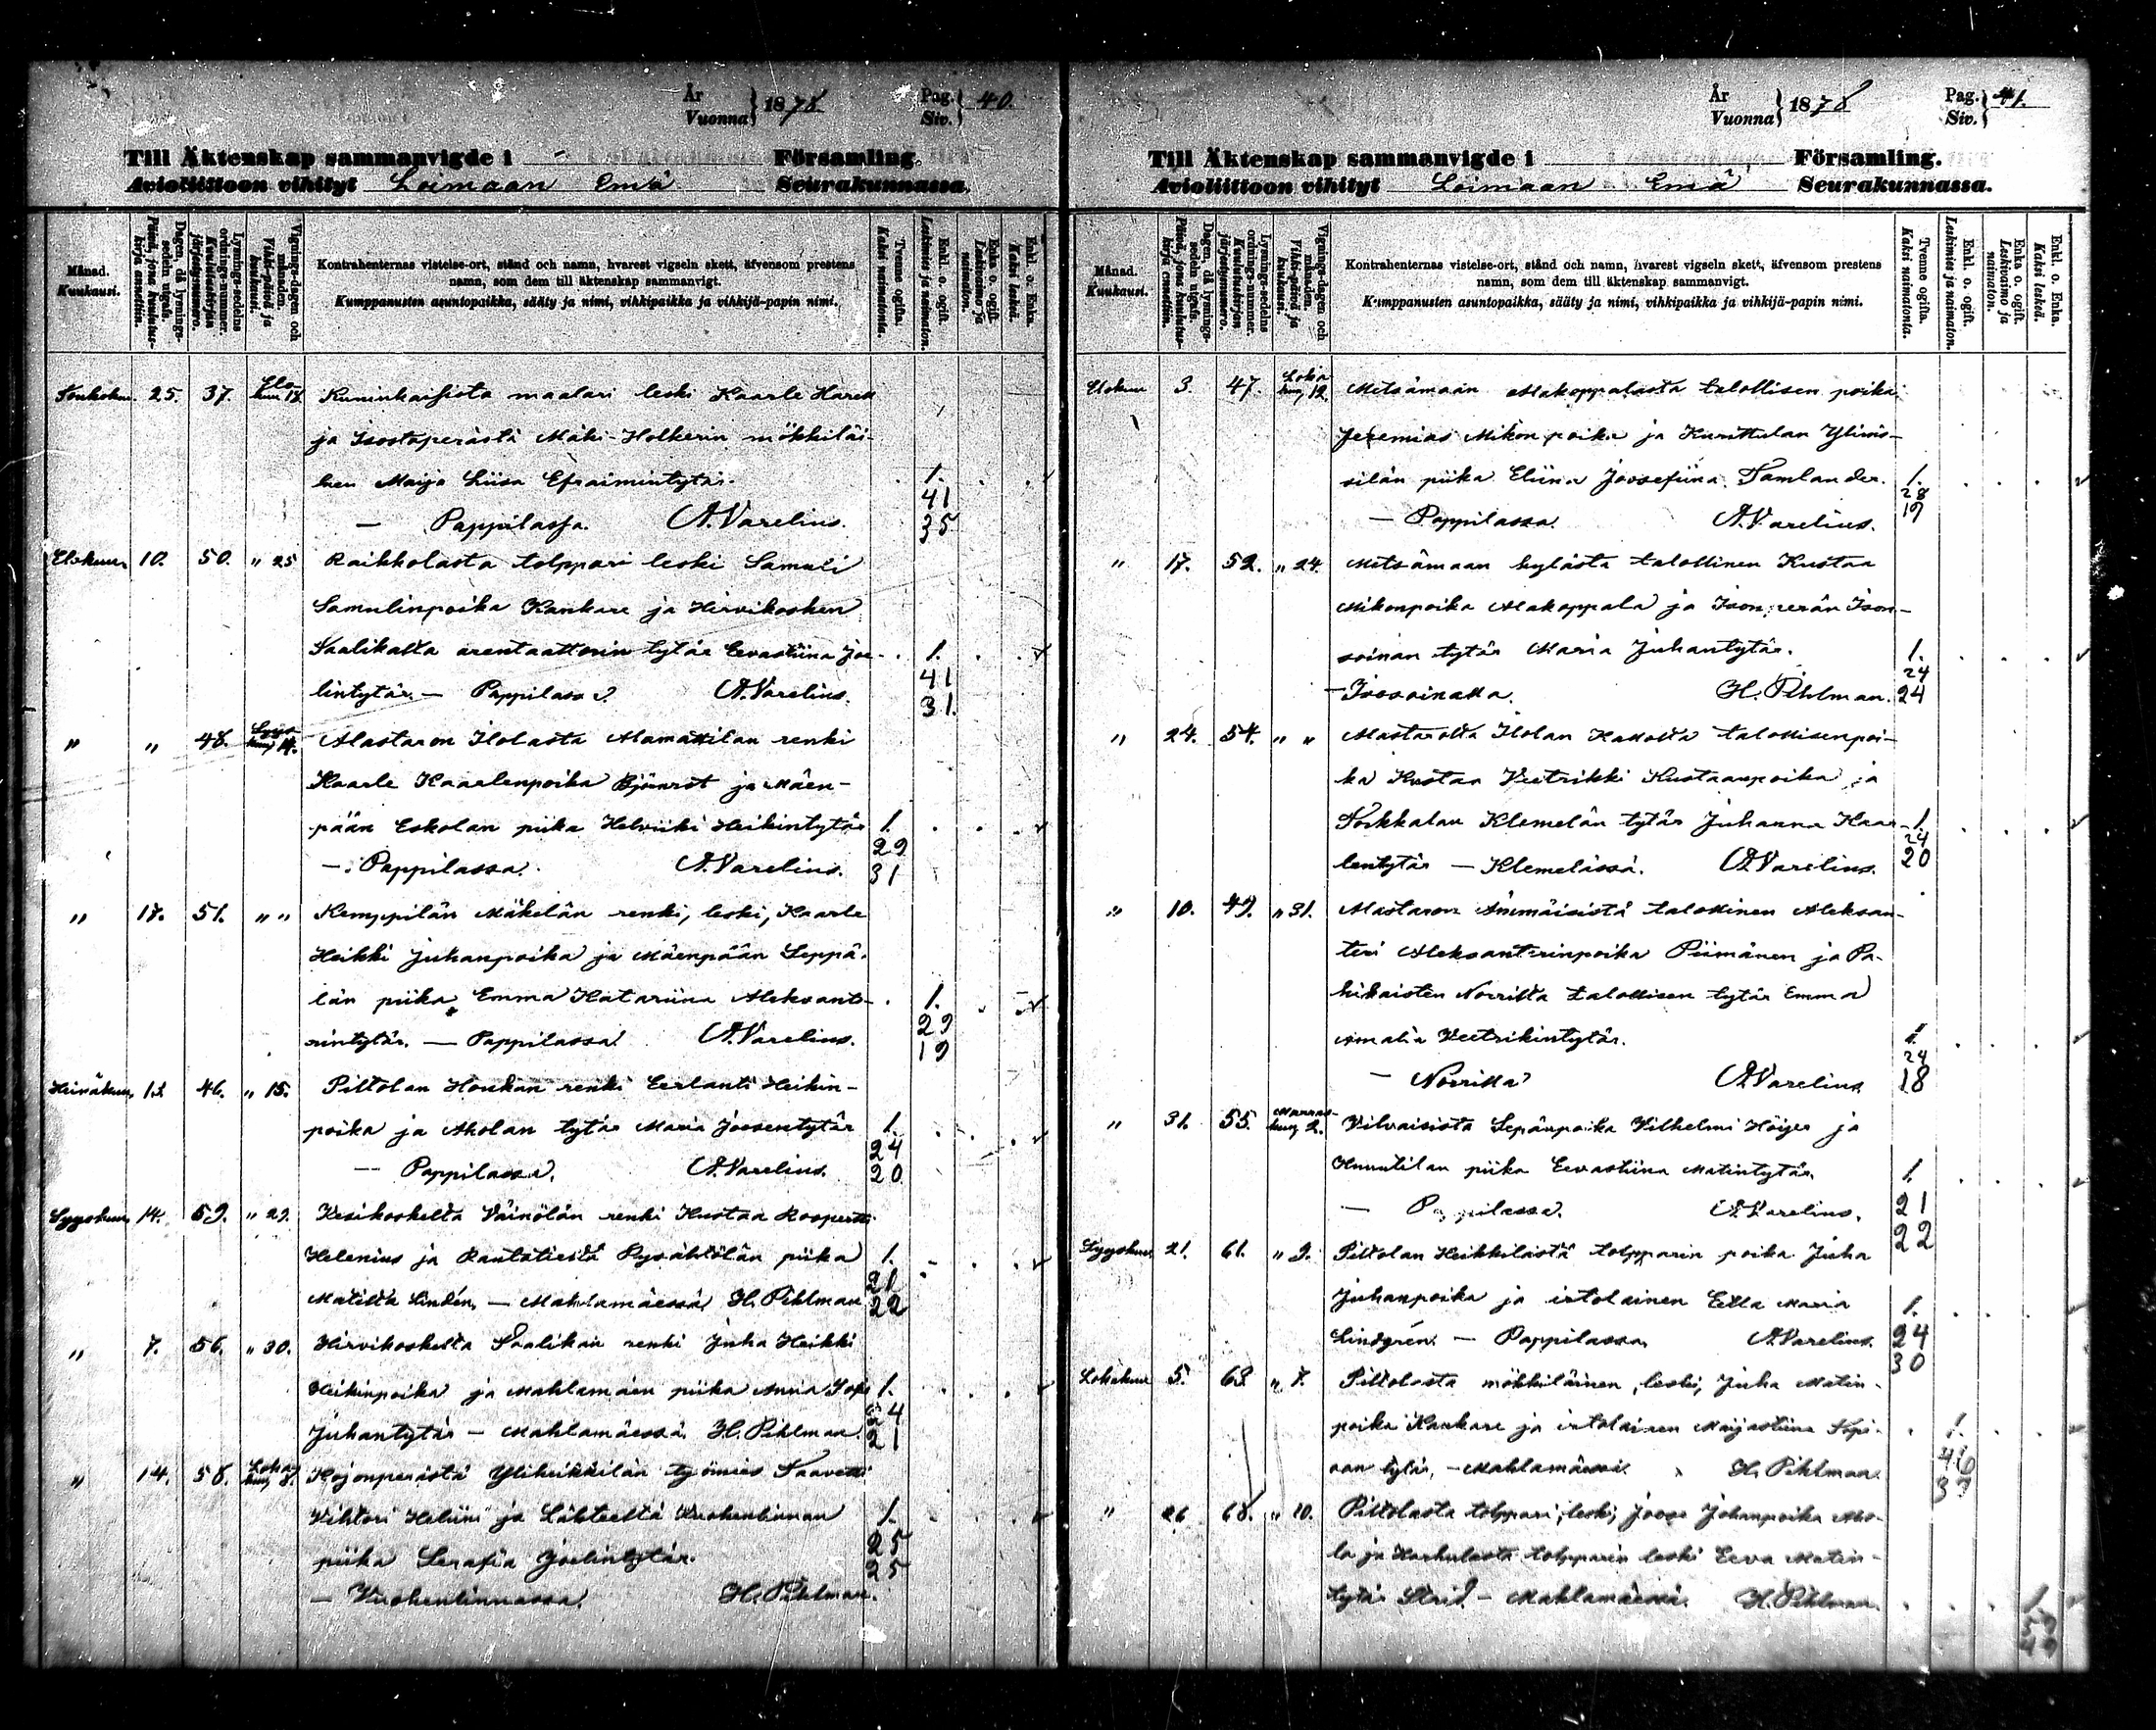 År
Vuonna } 1878
Pag.
Siv. } 40.
Till Äktenskap sammanvigde i Församling.
Avioliittoon vihityt Loimaan Emä Seurakunnassa.
Månad.
Kuukausi.
Dagen, då lysnings-sedeln utgafs.
Päivä, jona kuulutus-kirja annettiin.
Lysnings-sedelns ordnings-nummer.
Kuulutuskirjan järjestysnumero.
Vignings-dagen och månaden.
Vihki-päivä ja kuukausi.
Kontrahenternas vistelse-ort, stånd och namn, hvarest vigseln skett, äfvensom prestens
namn, som dem till äktenskap sammanvigt.
Kumppanusten asuntopaikka, sääty ja nimi, vihkipaikka ja vihkijä-papin nimi.
Tvenne ogifta.
Kaksi naimatonta.
Enkl. o. ogift.
Leskimies ja naimaton.
Enka o. ogift.
Leskivaimo ja naimaton.
Enkl. o. Enka.
Kaksi leskeä.
Toukokuu 25. 37. Elokuu 18. maalari leski Kaarle
ja Isostaperästä Mäki-Holkerin mökkiläi-
nen Maija Liisa Efraimintytär. 1.
— Pappilassa. A. Varelius. 41 35
Elokuu 10. 50. " 25 Raikkolasta torppari leski Samuli
Samulinpoika Kankare ja Hirvikosken
Saalikalta arentaattorin tytär Eevastiina Joe- 1.
lintytär. — Pappilassa. A. Varelius. 41 31.
" " 48. Syyskuu 14. Alastaron Ilolasta Alamattilan renki
Kaarle Kaarlenpoika ja Mäen-
pään Eskolan piika Helviiki Heikintytär 1.
— Pappilassa. A. Varelius. 29 31
" 17. 51. " " Kemppilän Mäkelän renki, leski, Kaarle
Heikki Juhanpoika ja Mäenpään Seppä-
län piika Emma Katariina Aleksant- 1.
rintytär. — Pappilassa. A. Varelius. 29 19
Heinäkuu 13. 46. " 15. Piltolan Houkan renki Eerlanti Heikin-
poika ja Aholan tytär Maria Joosentytär 1.
— Pappilassa. A. Varelius. 24 20
Syyskuu 14. 59. " 29. Kesikoskelta Väinölän renki Kustaa
Helenius ja piika 1.
Matilta Lindén, — Mahlamäessä. H. Pihlman 21 22
" 7. 56. " 30. Hirvikoskelta Saalikan renki Juha Heikki
Heikinpoika ja Mahlamäen piika Anna 1.
Juhantytär — Mahlamäessä. H. Pihlman. 24 21
" 14. 58. Lokakuu 8. Kojonperästä Yliheikkilän työmies Taavetti
Vihtori Heliin ja Vuohenlinnan 1.
piika Serafia Joelintytär. 25 25
— Vuohenlinnassa. H. Pihlman.
År
Vuonna } 1878
Pag.
Siv. } 41.
Till Äktenskap sammanvigde i Församling.
Avioliittoon vihityt Loimaan Emä Seurakunnassa.
Månad.
Kuukausi.
Dagen, då lysnings-sedeln utgafs.
Päivä, jona kuulutus-kirja annettiin.
Lysnings-sedelns ordnings-nummer.
Kuulutuskirjan järjestysnumero.
Vignings-dagen och månaden.
Vihki-päivä ja kuukausi.
Kontrahenternas vistelse-ort, stånd och namn, hvarest vigseln skett, äfvensom prestens
namn, som dem till äktenskap sammanvigt.
Kumppanusten asuntopaikka, sääty ja nimi, vihkipaikka ja vihkijä-papin nimi.
Tvenne ogifta.
Kaksi naimatonta.
Enkl. o. ogift.
Leskimies ja naimaton.
Enka o. ogift.
Leskivaimo ja naimaton.
Enkl. o. Enka.
Kaksi leskeä.
Elokuu 3. 47. Lokakuu 12. Metsämaan talollisen poika
Jeremias Mikonpoika ja Kurittulan
silän piika Eliina Joosefiina Tamlander. 1.
— Pappilassa. A. Varelius. 28 19
" 17. 52. " 24. Metsämaan kylästä talollinen Kustaa
Mikonpoika ja Isonperän Ison-
soinan tytär Maria Juhantytär. 1.
— H. Pihlman. 24 24
" 24. 54. " " Alastarolta Ilolan talollisenpoi-
ka Kustaa Veetrikki Kustaanpoika ja
Torkkalan Klemelän tytär Juhanna Kaar- 1.
lentytär — Klemelässä. A. Varelius. 24 20
" 10. 49. " 31. Alastaron talollinen Aleksan-
teri Aleksanterinpoika Piimänen ja Pa-
hikaisten talollisen tytär Emma
Amalia Veetrikintytär. 1.
— A. Varelius. 24 18
" 31. 55. Marraskuu 2. Vilvaisista Sepänpoika Vilhelmi Höijer ja
piika Eevastiina Matintytär. 1.
— Pappilassa. A. Varelius. 21 22
Syyskuu 21. 61. " 9. Piltolan Heikkilästä torpparin poika Juha
Juhanpoika ja irtolainen Eetla Maria 1.
Lindgrén. — Pappilassa. A. Varelius. 24 30
Lokakuu 5. 63. " 7. Piltolasta mökkiläinen, leski, Juha Matin-
poika Kankare ja irtolainen Maijastiina 1.
tytär, — Mahlamäessä. H. Pihlman.
" 26. 68. " 10. Piltolasta torppari, leski, Joose Johanpoika Aho-
la ja torpparin leski Eeva Matin-
tytär Strid. — Mahlamäessä. H. Pihlman. 1.